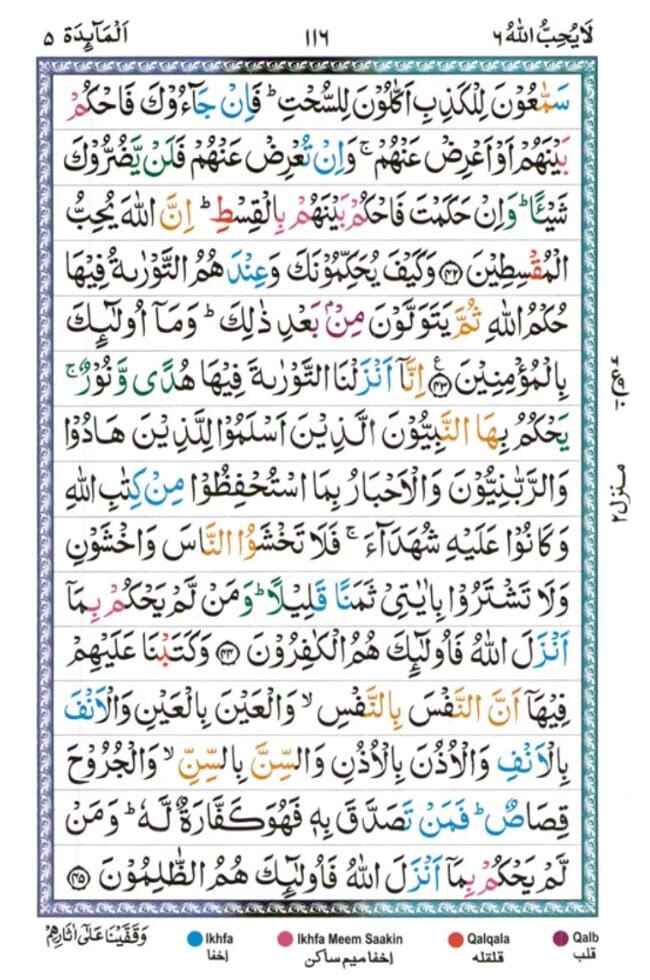 لَا يُحِبُّ اللهُ ٦ ١١٦ اَلْمَآئِدَة ٥
سَمّٰعُوْنَ لِلْكَذِبِ اَكّٰلُوْنَ لِلسُّحْتِ ؕ فَاِنْ جَآءُوْكَ فَاحْكُمْ
بَيْنَهُمْ اَوْ اَعْرِضْ عَنْهُمْ ۚ وَاِنْ تُعْرِضْ عَنْهُمْ فَلَنْ يَّضُرُّوْكَ
شَيْـًٔا ؕ وَاِنْ حَكَمْتَ فَاحْكُمْ بَيْنَهُمْ بِالْقِسْطِ ؕ اِنَّ اللهَ يُحِبُّ
الْمُقْسِطِيْنَ ﴿٤٢﴾ وَكَيْفَ يُحَكِّمُوْنَكَ وَعِنْدَهُمُ التَّوْرٰىةُ فِيْهَا
حُكْمُ اللهِ ثُمَّ يَتَوَلَّوْنَ مِنْۢ بَعْدِ ذٰلِكَ ؕ وَمَآ اُولٰٓئِكَ
بِالْمُؤْمِنِيْنَ ﴿٤٣﴾ اِنَّآ اَنْزَلْنَا التَّوْرٰىةَ فِيْهَا هُدًى وَّنُوْرٌ ۚ
يَحْكُمُ بِهَا النَّبِيُّوْنَ الَّذِيْنَ اَسْلَمُوْا لِلَّذِيْنَ هَادُوْا
وَالرَّبّٰنِيُّوْنَ وَالْاَحْبَارُ بِمَا اسْتُحْفِظُوْا مِنْ كِتٰبِ اللهِ
وَكَانُوْا عَلَيْهِ شُهَدَآءَ ۚ فَلَا تَخْشَوُا النَّاسَ وَاخْشَوْنِ
وَلَا تَشْتَرُوْا بِاٰيٰتِيْ ثَمَنًا قَلِيْلًا ؕ وَمَنْ لَّمْ يَحْكُمْ بِمَآ
اَنْزَلَ اللهُ فَاُولٰٓئِكَ هُمُ الْكٰفِرُوْنَ ﴿٤٤﴾ وَكَتَبْنَا عَلَيْهِمْ
فِيْهَآ اَنَّ النَّفْسَ بِالنَّفْسِ ۙ وَالْعَيْنَ بِالْعَيْنِ وَالْاَنْفَ
بِالْاَنْفِ وَالْاُذُنَ بِالْاُذُنِ وَالسِّنَّ بِالسِّنِّ ۙ وَالْجُرُوْحَ
قِصَاصٌ ؕ فَمَنْ تَصَدَّقَ بِهٖ فَهُوَ كَفَّارَةٌ لَّهٗ ؕ وَمَنْ
لَّمْ يَحْكُمْ بِمَآ اَنْزَلَ اللهُ فَاُولٰٓئِكَ هُمُ الظّٰلِمُوْنَ ﴿٤٥﴾
منزل ٢
وَقَفَّيْنَا عَلٰٓى اٰثَارِهِمْ
Ikhfa Ikhfa Meem Saakin Qalqala Qalb
اخفا اخفا میم ساکن قلقله قلب